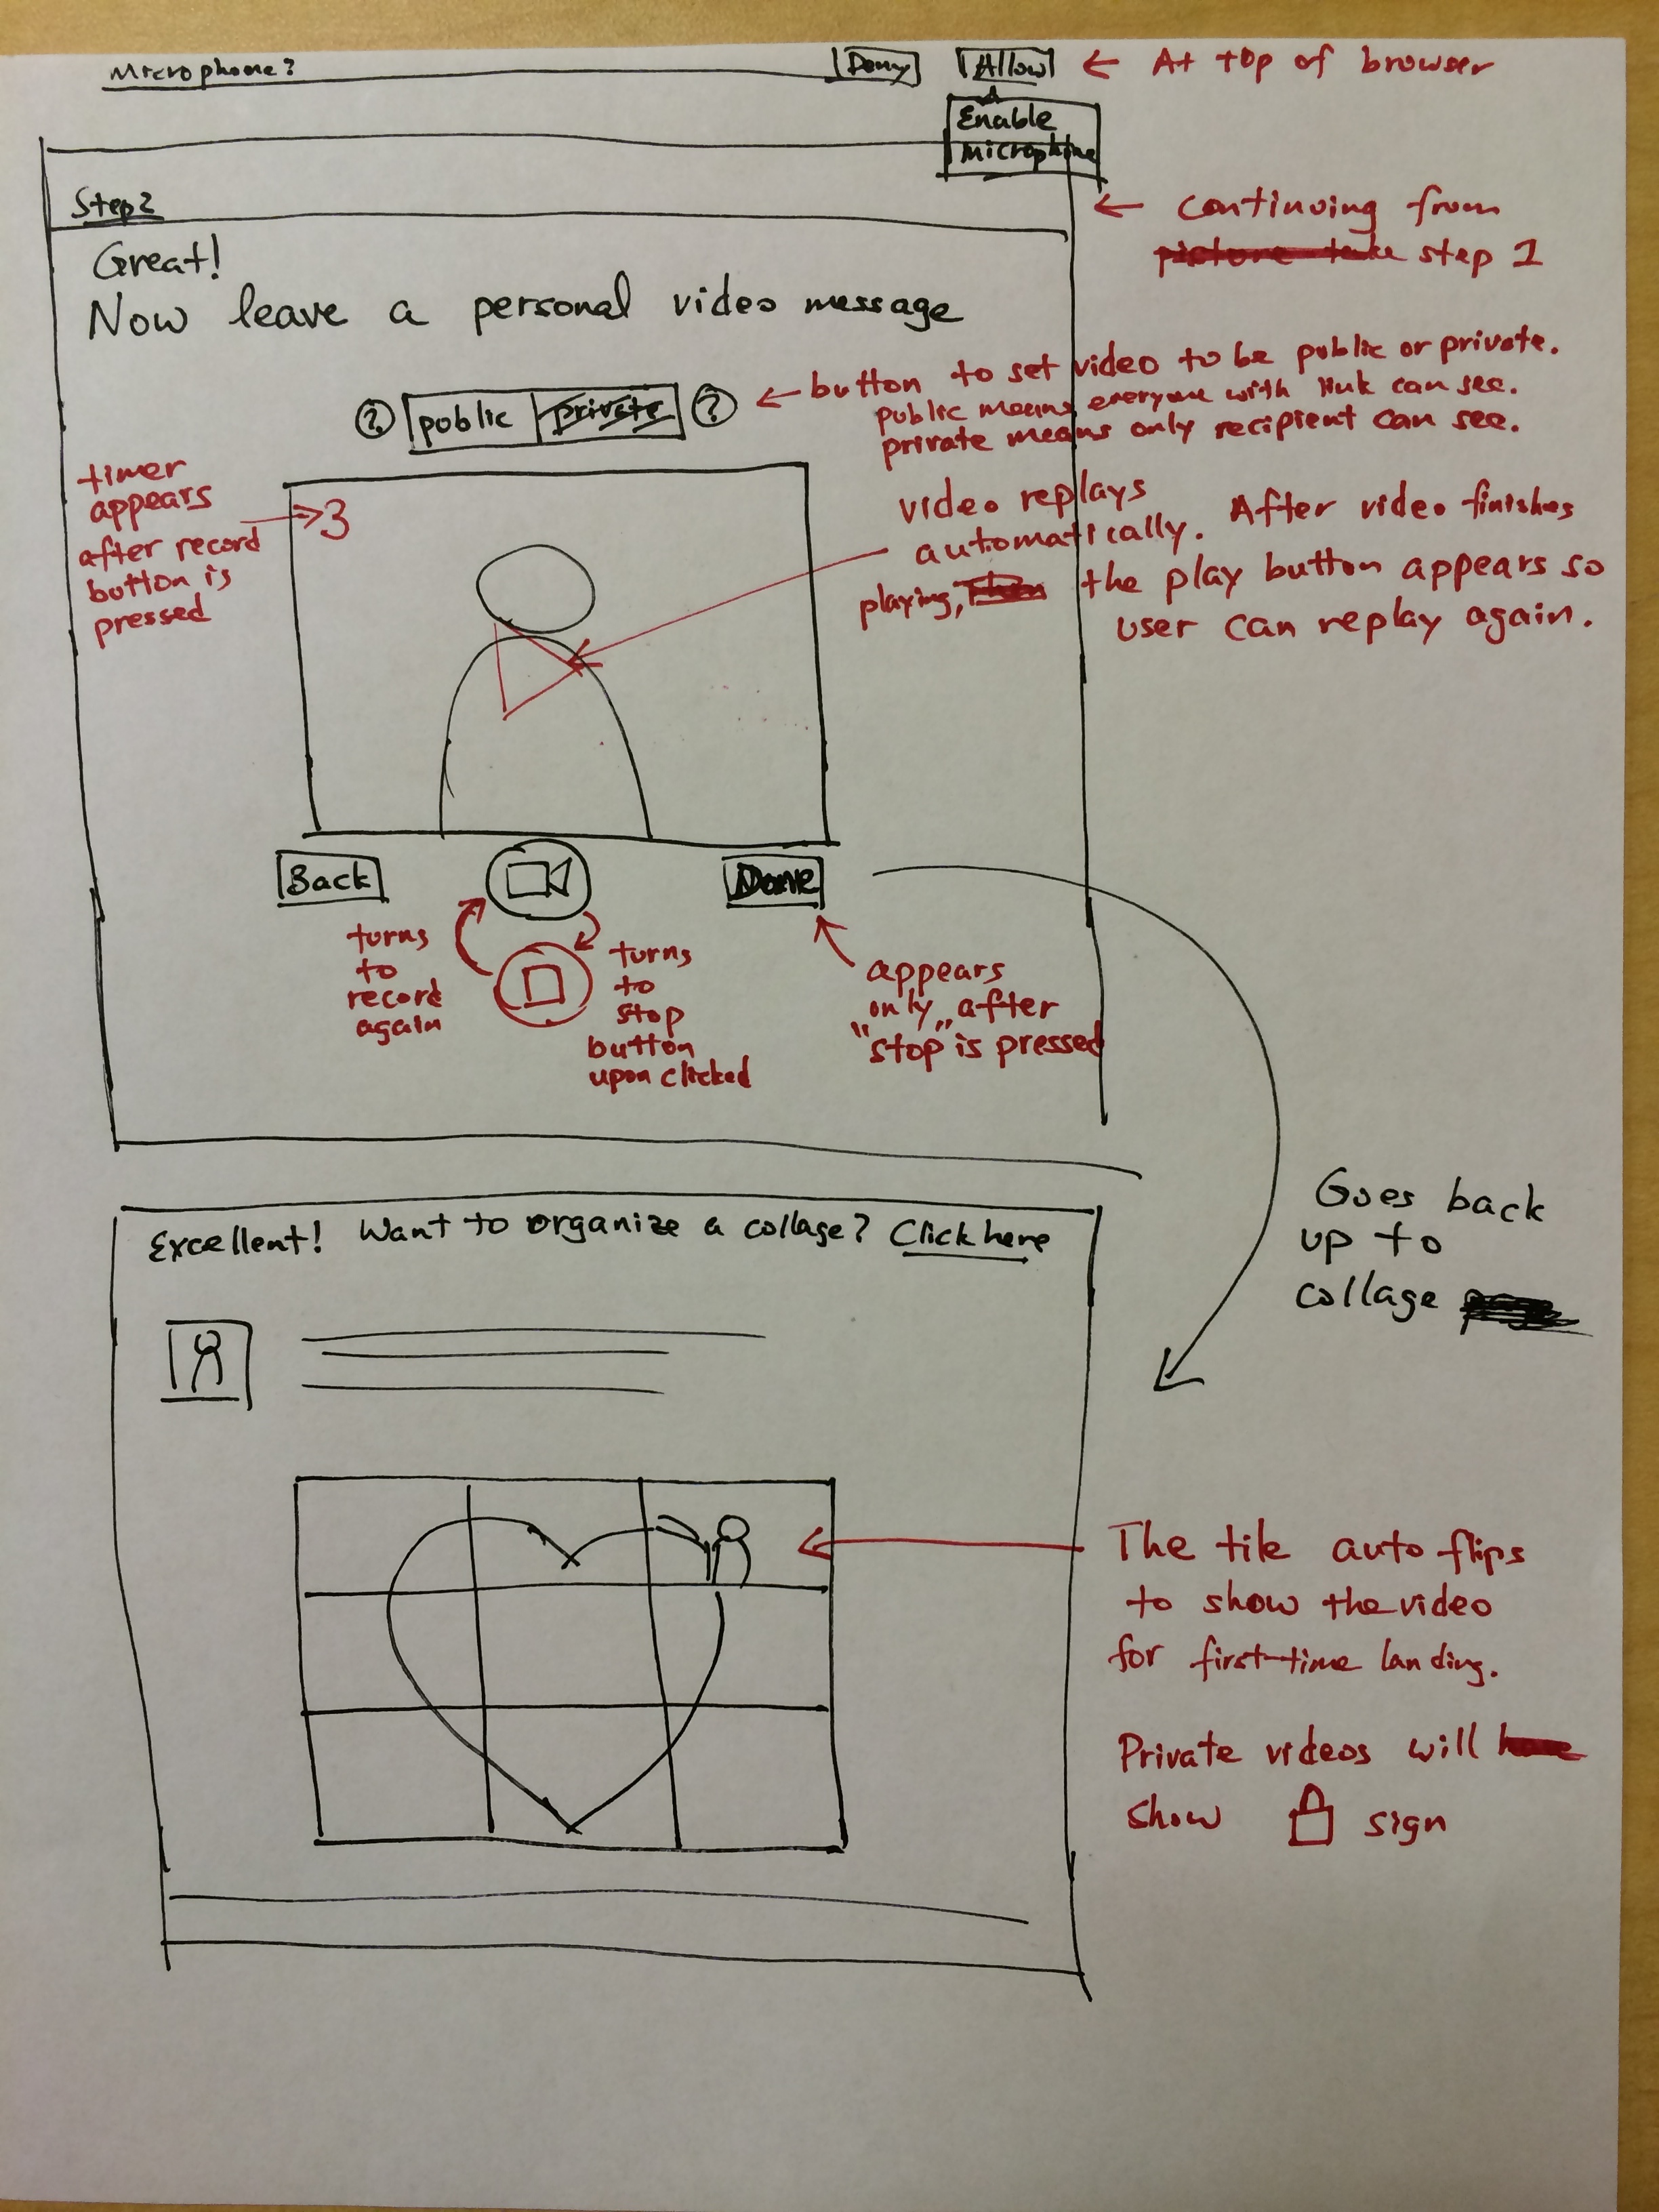 Microphone?
Deny
Allow
← At top of browser
Enable
Microphone
Step 2
← continuing from
picture take step 1
Great!
Now leave a personal video message
? public private ?
← button to set video to be public or private.
public means everyone with link can see.
private means only recipient can see.
timer
appears
after record
button is
pressed
3
video replays
automatically. After video finishes
playing, then the play button appears so
user can replay again.
Back
Done
turns
to
record
again
turns
to
stop
button
upon clicked
appears
only after
"stop" is pressed
Goes back
up to
collage
Excellent! Want to organize a collage? Click here
The tile auto flips
to show the video
for first-time landing.
Private videos will
show sign